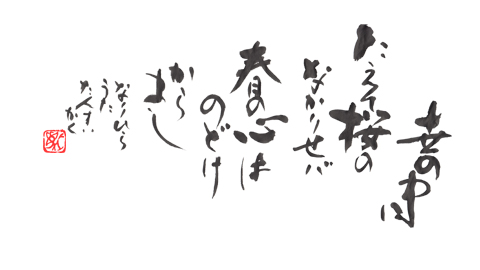 世の中に
たえて桜の
なかりせば
春の心は
のどけ
から
まし
なりひら
うた
たんすい
かく